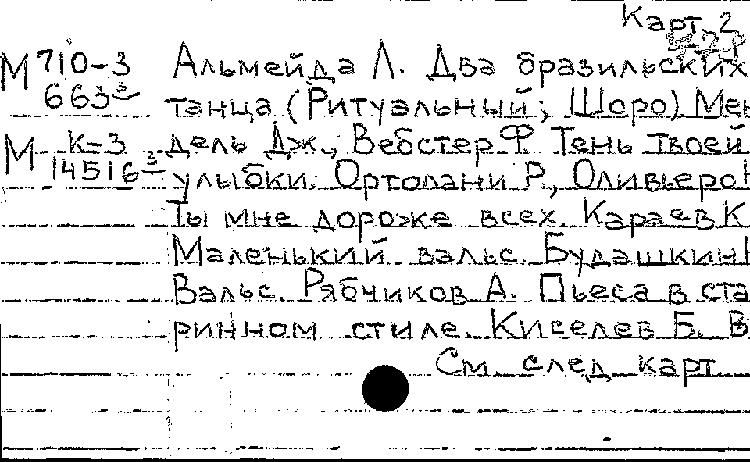 Карт. 2
М 710-3 Альмейда Л. Два бразильских
663 танца (Ритуальный; Шоро) Мен
М К-3 дель Дж., Вебстер Ф. Тень твоей
14516 улыбки. Ортолани Р., Оливьеро Н
Ты мне дороже всех. Караев К
Маленький вальс. Будашкин Н
Вальс. Рябчиков А. Пьеса в ста
ринном стиле. Киселев Б. В
См. след. карт